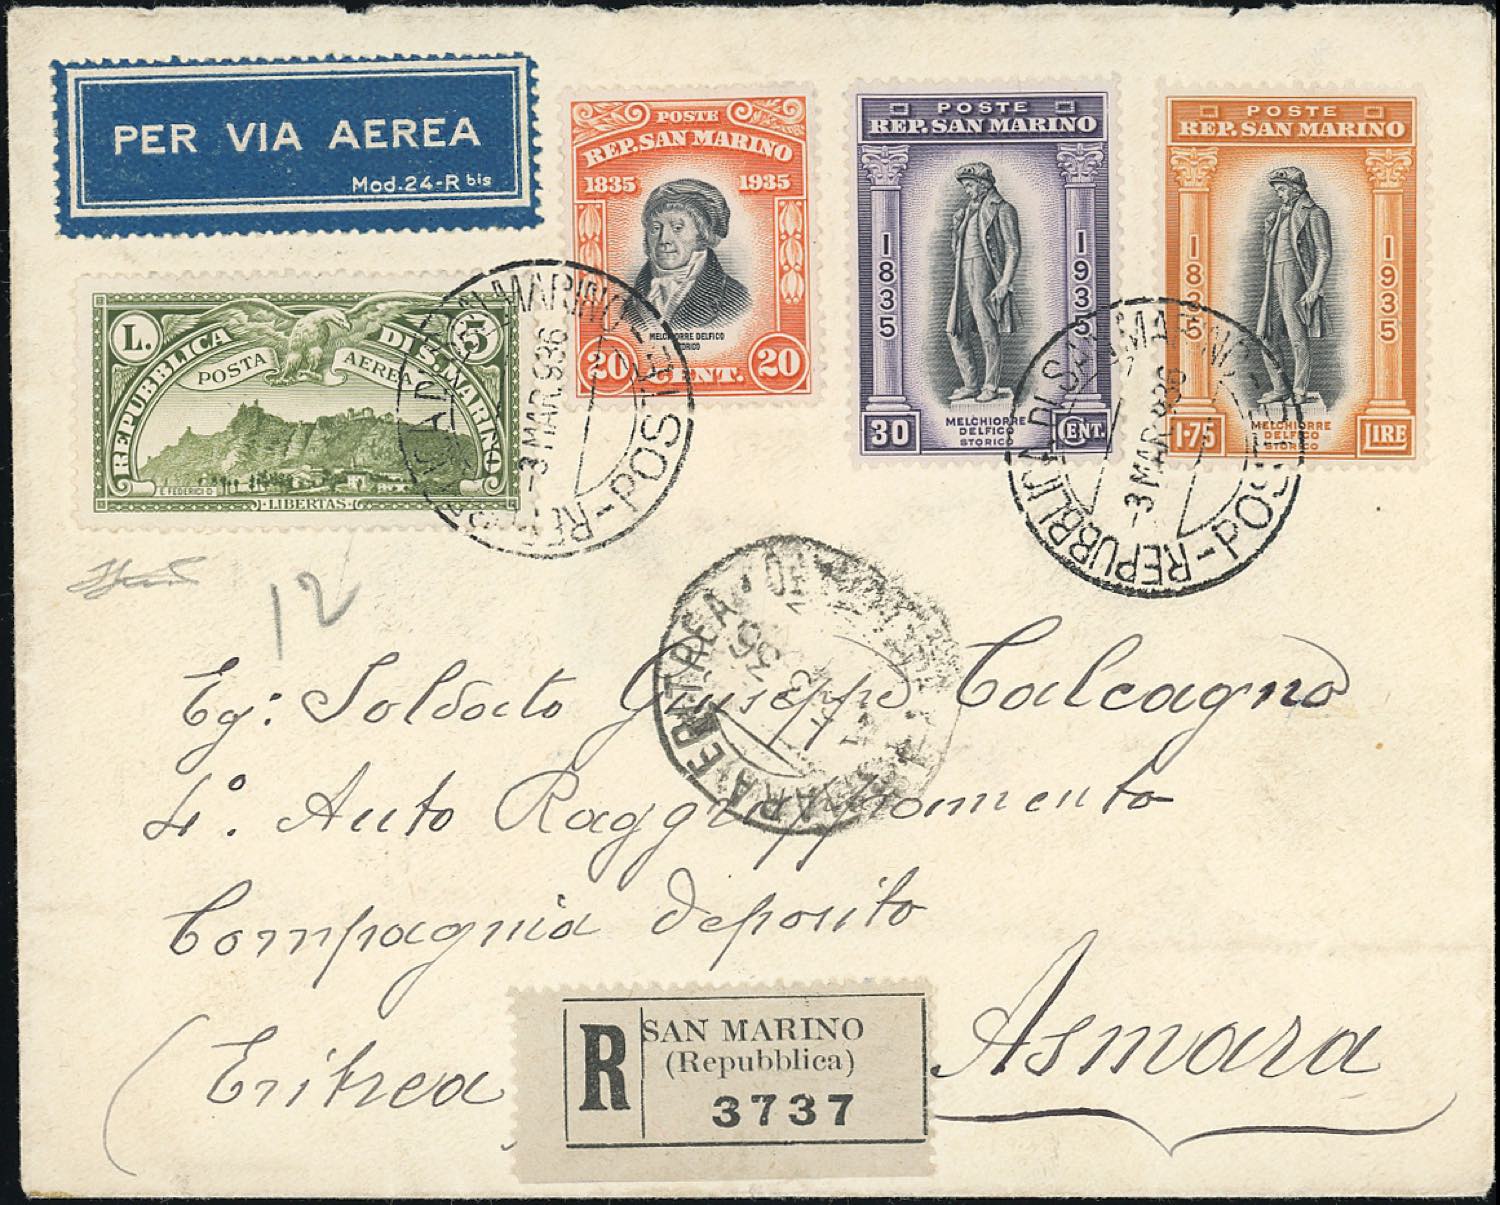 PER VIA AEREA
Mod.24-R bis
L. 5
REPUBBLICA DI S. MARINO
POSTA AEREA
E. FEDERICI D.
LIBERTAS
POSTE
REP. SAN MARINO
1835 1935
MELCHIORRE DELFICO
STORICO
20 CENT. 20
POSTE
REP. SAN MARINO
1835 1935
MELCHIORRE
DELFICO
STORICO
30 CENT.
POSTE
REP. SAN MARINO
1835 1935
MELCHIORRE
DELFICO
STORICO
1·75 LIRE
REPUBBLICA DI SAN MARINO - POSTE -
-3 MAR. 936
REPUBBLICA DI SAN MARINO - POSTE -
-3 MAR. 936
12
ASMARA ERITREA
Eg: Soldato Giuseppe Calcagno
4° Auto Raggruppamento
Compagnia deposito
Asmara
(Eritrea
R
SAN MARINO
(Repubblica)
3737